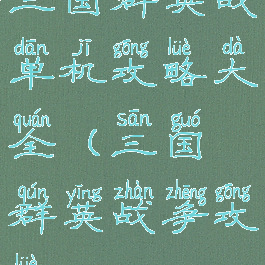 三国群英战
dān jī gōng lüè dà
单机攻略大
quán sān guó
全（三国
qún yīng zhàn zhēng gōng
群英战争攻
lüè